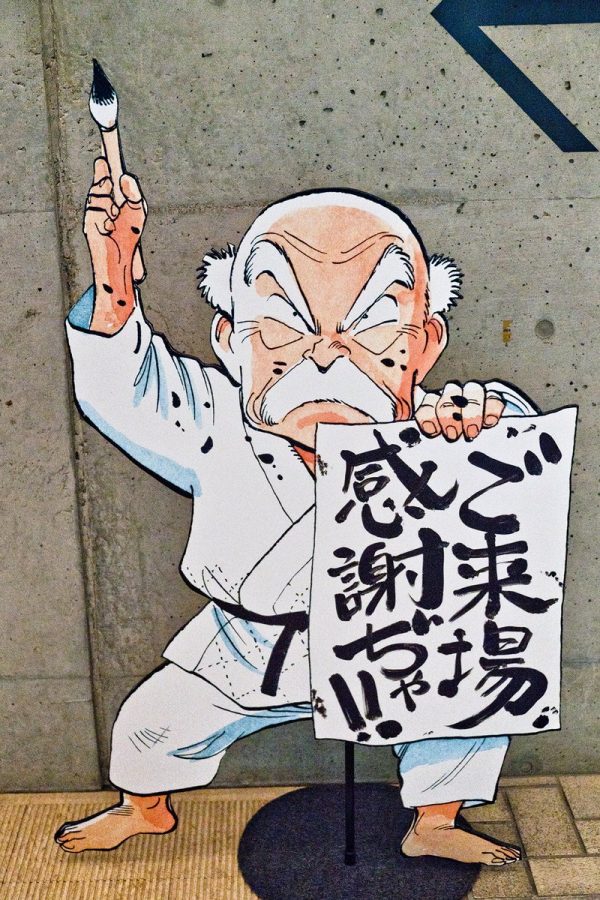 ご来場
感謝ぢゃ!!